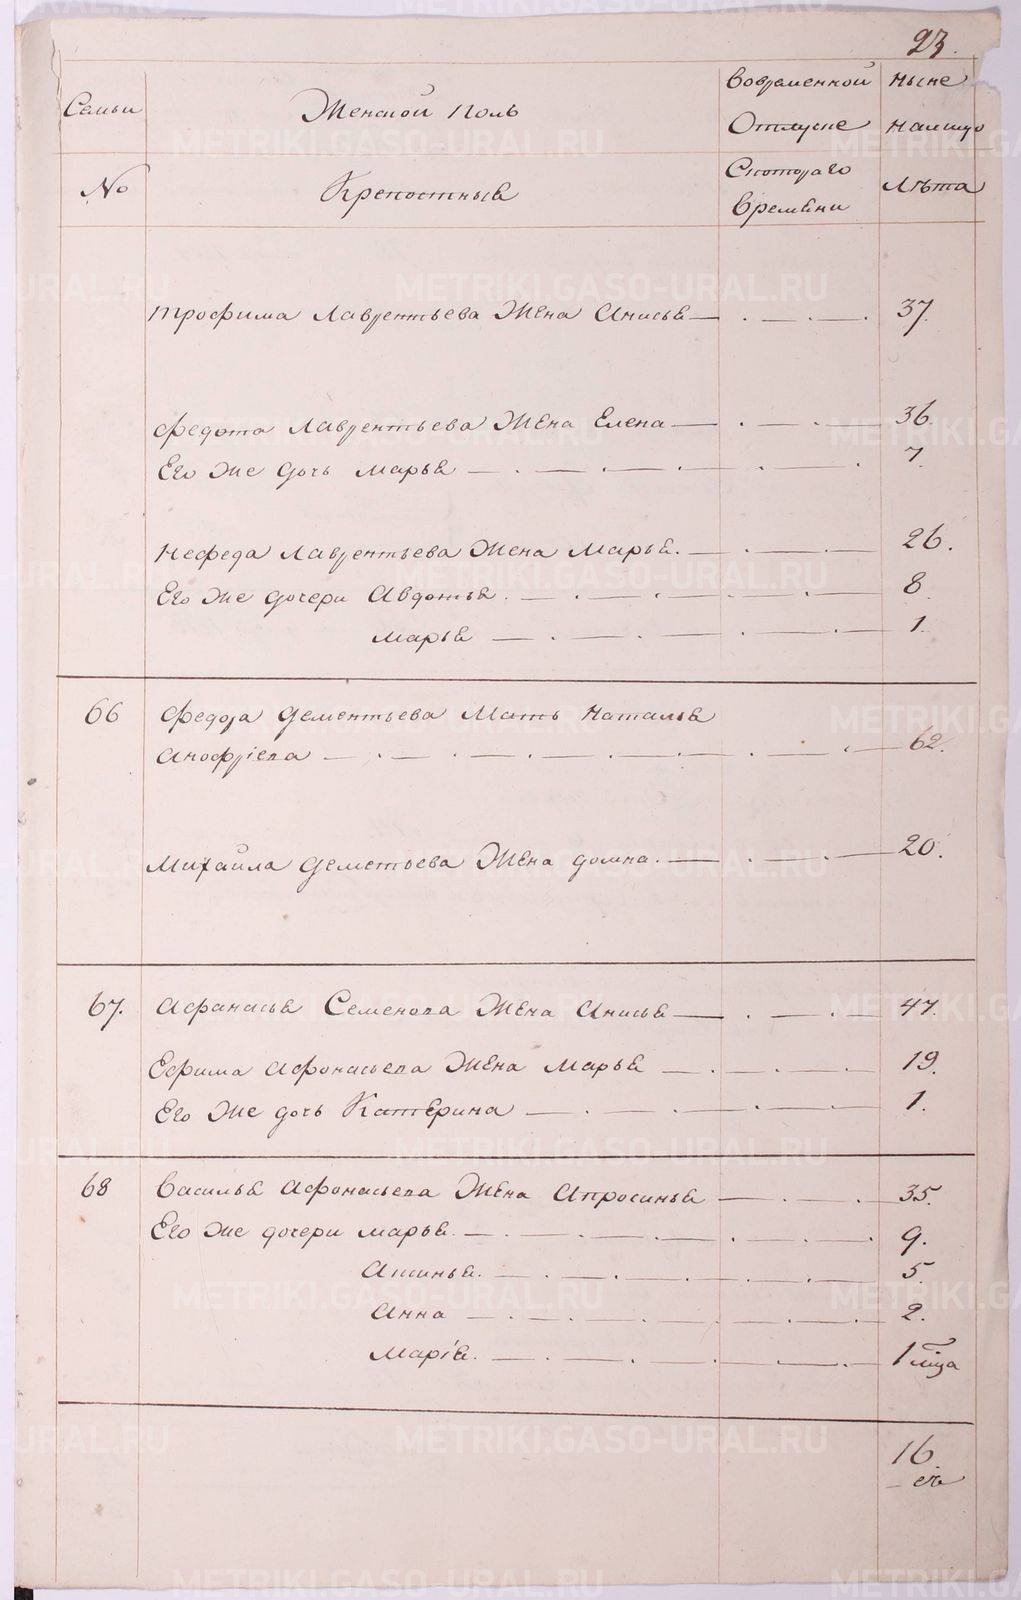 23.
Семьи Женской полъ Вовременной Ныне
Отлучке налицо
№ Крепостныя Скотораго Лѣта
времѣни
Трофима Лаврентьева Жена Анисья — . — . — . 37.
Федота Лаврентьева Жена Елена — . — . — 36.
Его же дочь Марья — . — . — . — . — . 7.
Нефеда Лаврентьева Жена Марья. — . — . — 26.
Его же дочери Авдотья. — . — . — . — . — 8.
Марья — . — . — . — . — 1.
66 Федора Дементьева Мать Наталья
Анофріева — . — . — . — . — . — . — 62.
Михайла Деметьева Жена Домна. — . — . — 20.
67. Афанасья Семенова Жена Анисья — . — . — 47.
Ефима Афонасьева Жена Марья — . — . — 19.
Его же дочь Катерина — . — . — . — . — 1.
68 Василья Афонасьева Жена Апросинья — . — . — 35.
Его же дочери Марья. — . — . — . — . — . 9.
Аксинья. — . — . — . — . — 5.
Анна — . — . — . — . — . — 2.
Марія. — . — . — . — . — 1 мца
16.